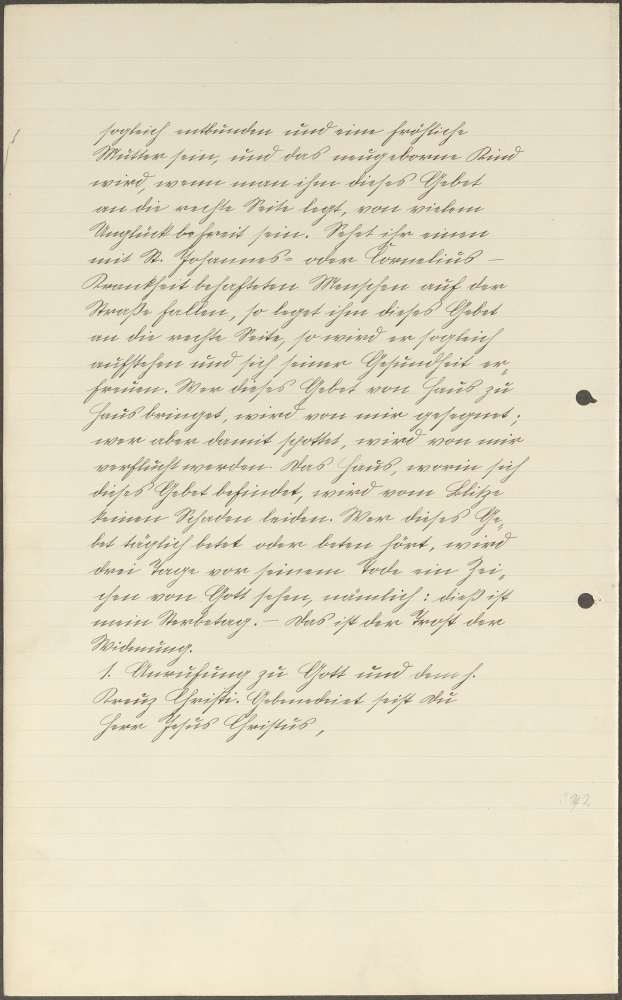 sogleich entbunden und eine fröhliche
Mutter sein, und das neugeborne Kind
wird, wenn man ihm dieses Gebet
an die rechte Seite legt, von vielem
Unglück befreit sein. Sehet ihr einen
mit St. Johannes- oder Cornelius-
Krankheit behafteten Menschen auf der
Straße fallen, so leget ihm dieses Gebet
an die rechte Seite, so wird er sogleich
aufstehen und sich seiner Gesundheit er-
freuen. Wer dieses Gebet von Haus zu
Haus bringet, wird von mir gesegnet;
wer aber damit spottet, wird von mir
verflucht werden. Das Haus, worin sich
dieses Gebet befindet, wird vom Blitze
keinen Schaden leiden. Wer dieses Ge-
bet täglich betet oder beten hört, wird
drei Tage vor seinem Tode ein Zei-
chen von Gott sehen, nämlich: dieß ist
mein Sterbetag. – Das ist der Trost der
Widmung.
1. Anrufung zu Gott und dem h.
Kreuz Christi. Gebenedeiet seist du
Herr Jesus Christus,